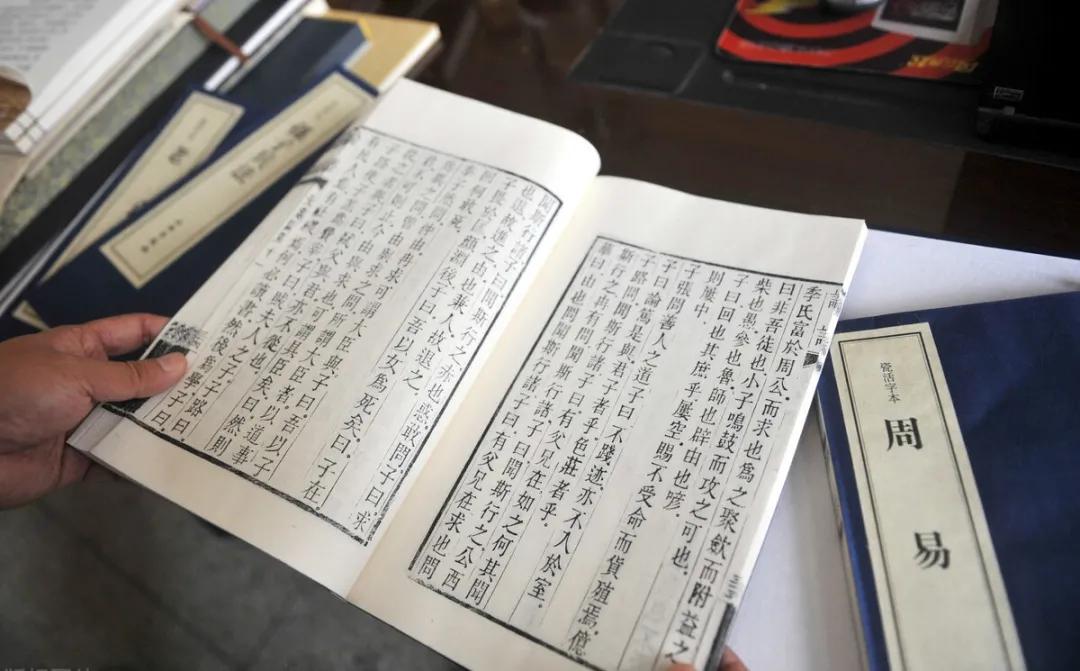 季氏富於周公。而求也為之聚斂而附益之
曰非吾徒也。小子鳴鼓而攻之可也。
柴也愚。參也魯。師也辟。由也喭。
子曰回也其庶乎屢空。賜不受命而貨殖焉。億
則屢中。
子張問善人之道。子曰不踐迹。亦不入於室。
子曰論篤是與君子者乎。色莊者乎。
子路問聞斯行諸。子曰有父兄在。如之何其聞
斯行之。冉有問聞斯行諸。子曰聞斯行之。公西
華曰由也問聞斯行諸。子曰有父兄在。求也問
聞斯行諸。子曰聞斯行之。赤也惑。敢問。子曰。求
也退。故進之。由也兼人。故退之。
子畏於匡。顏淵後。子曰吾以女為死矣。曰子在。
回何敢死。
季子然問仲由冉求可謂大臣與。子曰吾以子
為異之問。曾由與求之問。所謂大臣者。以道事
君。不可則止。今由與求也。可謂具臣矣。曰然則
從之者與。子曰弒父與君。亦不從也。
子路使子羔為費宰。子曰賊夫人之子。子路曰。
有民人焉。有社稷焉。何必讀書。然後為學。子曰。
瓷活字本
周易